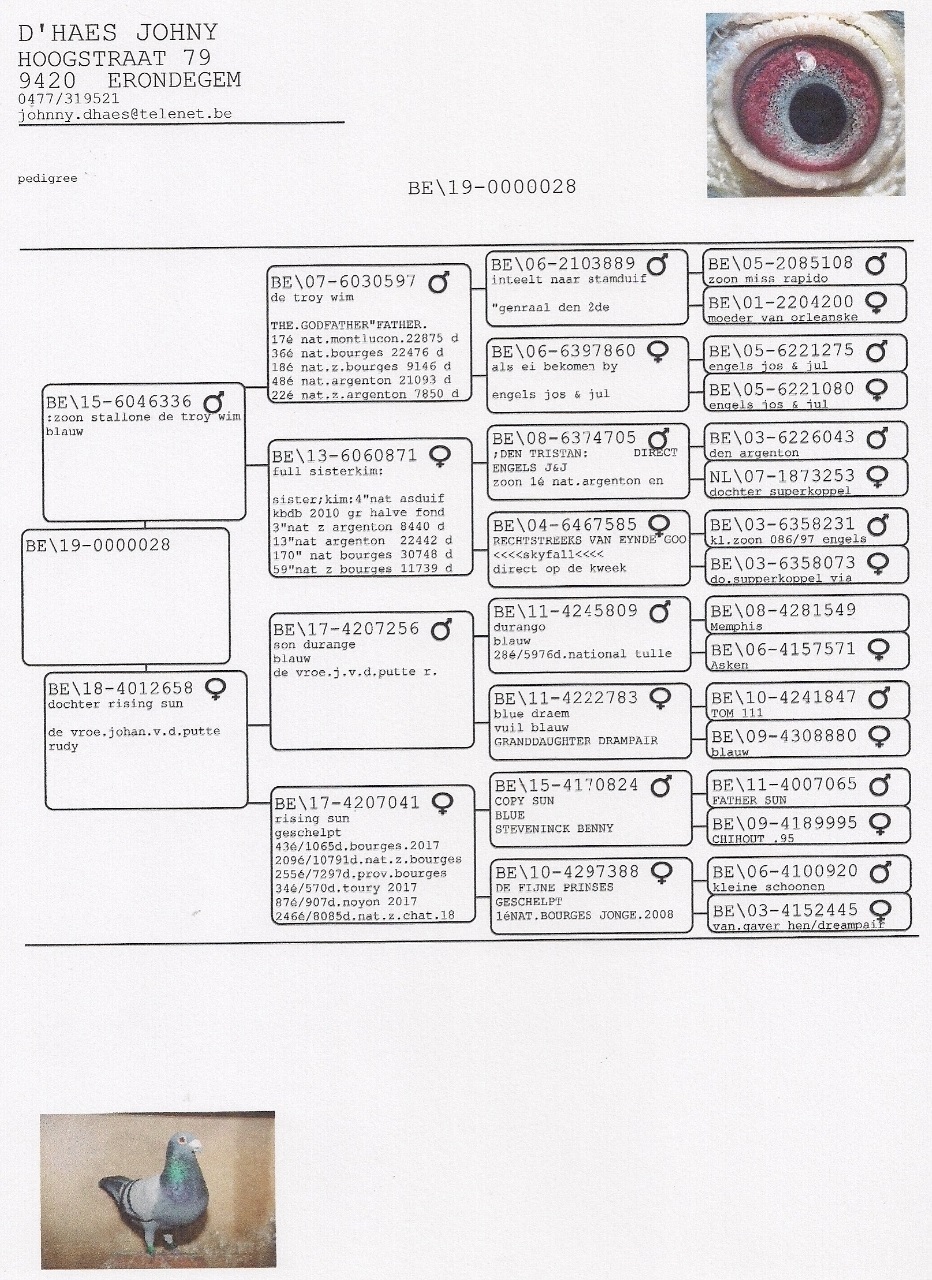 D'HAES JOHNY
HOOGSTRAAT 79
9420 ERONDEGEM
0477/319521
johnny.dhaes@telenet.be
pedigree
BE\19-0000028
BE\19-0000028
BE\15-6046336 ♂
:zoon stallone de troy wim
blauw
BE\18-4012658 ♀
dochter rising sun
de vroe.johan.v.d.putte
rudy
BE\07-6030597 ♂
de troy wim
THE.GODFATHER"FATHER.
17é nat.montlucon.22875 d
36é nat.bourges 22476 d
18é nat.z.bourges 9146 d
48é nat.argenton 21093 d
22é nat.z.argenton 7850 d
BE\13-6060871 ♀
full sisterkim:
sister;kim:4"nat asduif
kbdb 2010 gr halve fond
3"nat z argenton 8440 d
13"nat argenton 22442 d
170" nat bourges 30748 d
59"nat z bourges 11739 d
BE\17-4207256 ♂
son durange
blauw
de vroe.j.v.d.putte r.
BE\17-4207041 ♀
rising sun
geschelpt
43é/1065d.bourges.2017
209é/10791d.nat.z.bourges
255é/7297d.prov.bourges
34é/570d.toury 2017
87é/907d.noyon 2017
246é/8085d.nat.z.chat.18
BE\06-2103889 ♂
inteelt naar stamduif
"genraal den 2de
BE\06-6397860 ♀
als ei bekomen by
engels jos & jul
BE\08-6374705 ♂
;DEN TRISTAN: DIRECT
ENGELS J&J
zoon 1é nat.argenton en
BE\04-6467585 ♀
RECHTSTREEKS VAN EYNDE GOO
<<<<skyfall<<<<
direct op de kweek
BE\11-4245809 ♂
durango
blauw
28é/5976d.national tulle
BE\11-4222783 ♀
blue draem
vuil blauw
GRANDDAUGHTER DRAMPAIR
BE\15-4170824 ♂
COPY SUN
BLUE
STEVENINCK BENNY
BE\10-4297388 ♀
DE FIJNE PRINSES
GESCHELPT
1éNAT.BOURGES JONGE.2008
BE\05-2085108 ♂
zoon miss rapido
BE\01-2204200 ♀
moeder van orleanske
BE\05-6221275 ♂
engels jos & jul
BE\05-6221080 ♀
engels jos & jul
BE\03-6226043 ♂
den argenton
NL\07-1873253 ♀
dochter superkoppel
BE\03-6358231 ♂
kl.zoon 086/97 engels
BE\03-6358073 ♀
do.supperkoppel via
BE\08-4281549
Memphis
BE\06-4157571 ♀
Asken
BE\10-4241847 ♂
TOM 111
BE\09-4308880 ♀
blauw
BE\11-4007065 ♂
FATHER SUN
BE\09-4189995 ♀
CHIHOUT .95
BE\06-4100920 ♂
kleine schoonen
BE\03-4152445 ♀
van.gaver hen/dreampair